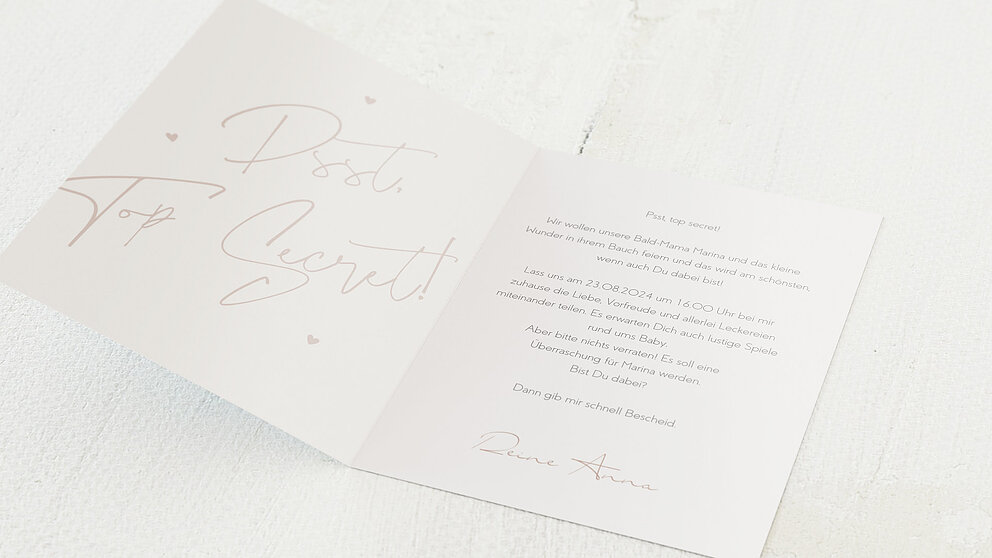 Psst,
Top Secret!
Psst, top secret!
Wir wollen unsere Bald-Mama Marina und das kleine
Wunder in ihrem Bauch feiern und das wird am schönsten,
wenn auch Du dabei bist!
Lass uns am 23.08.2024 um 16:00 Uhr bei mir
zuhause die Liebe, Vorfreude und allerlei Leckereien
miteinander teilen. Es erwarten Dich auch lustige Spiele
rund ums Baby.
Aber bitte nichts verraten! Es soll eine
Überraschung für Marina werden.
Bist Du dabei?
Dann gib mir schnell Bescheid.
Deine Anna